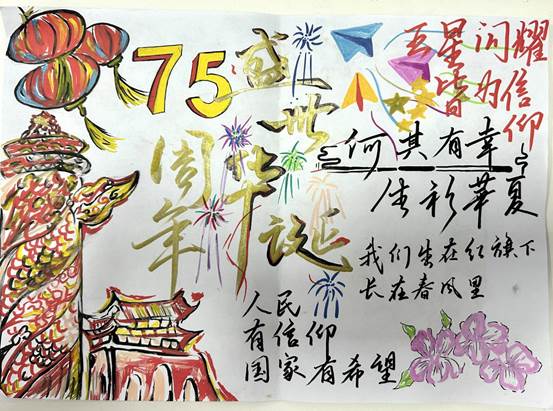 75
周年
盛世华诞
五星闪耀
皆为信仰
何其有幸
生於華夏
我们生在红旗下
长在春风里
人民
有信仰
国家有希望